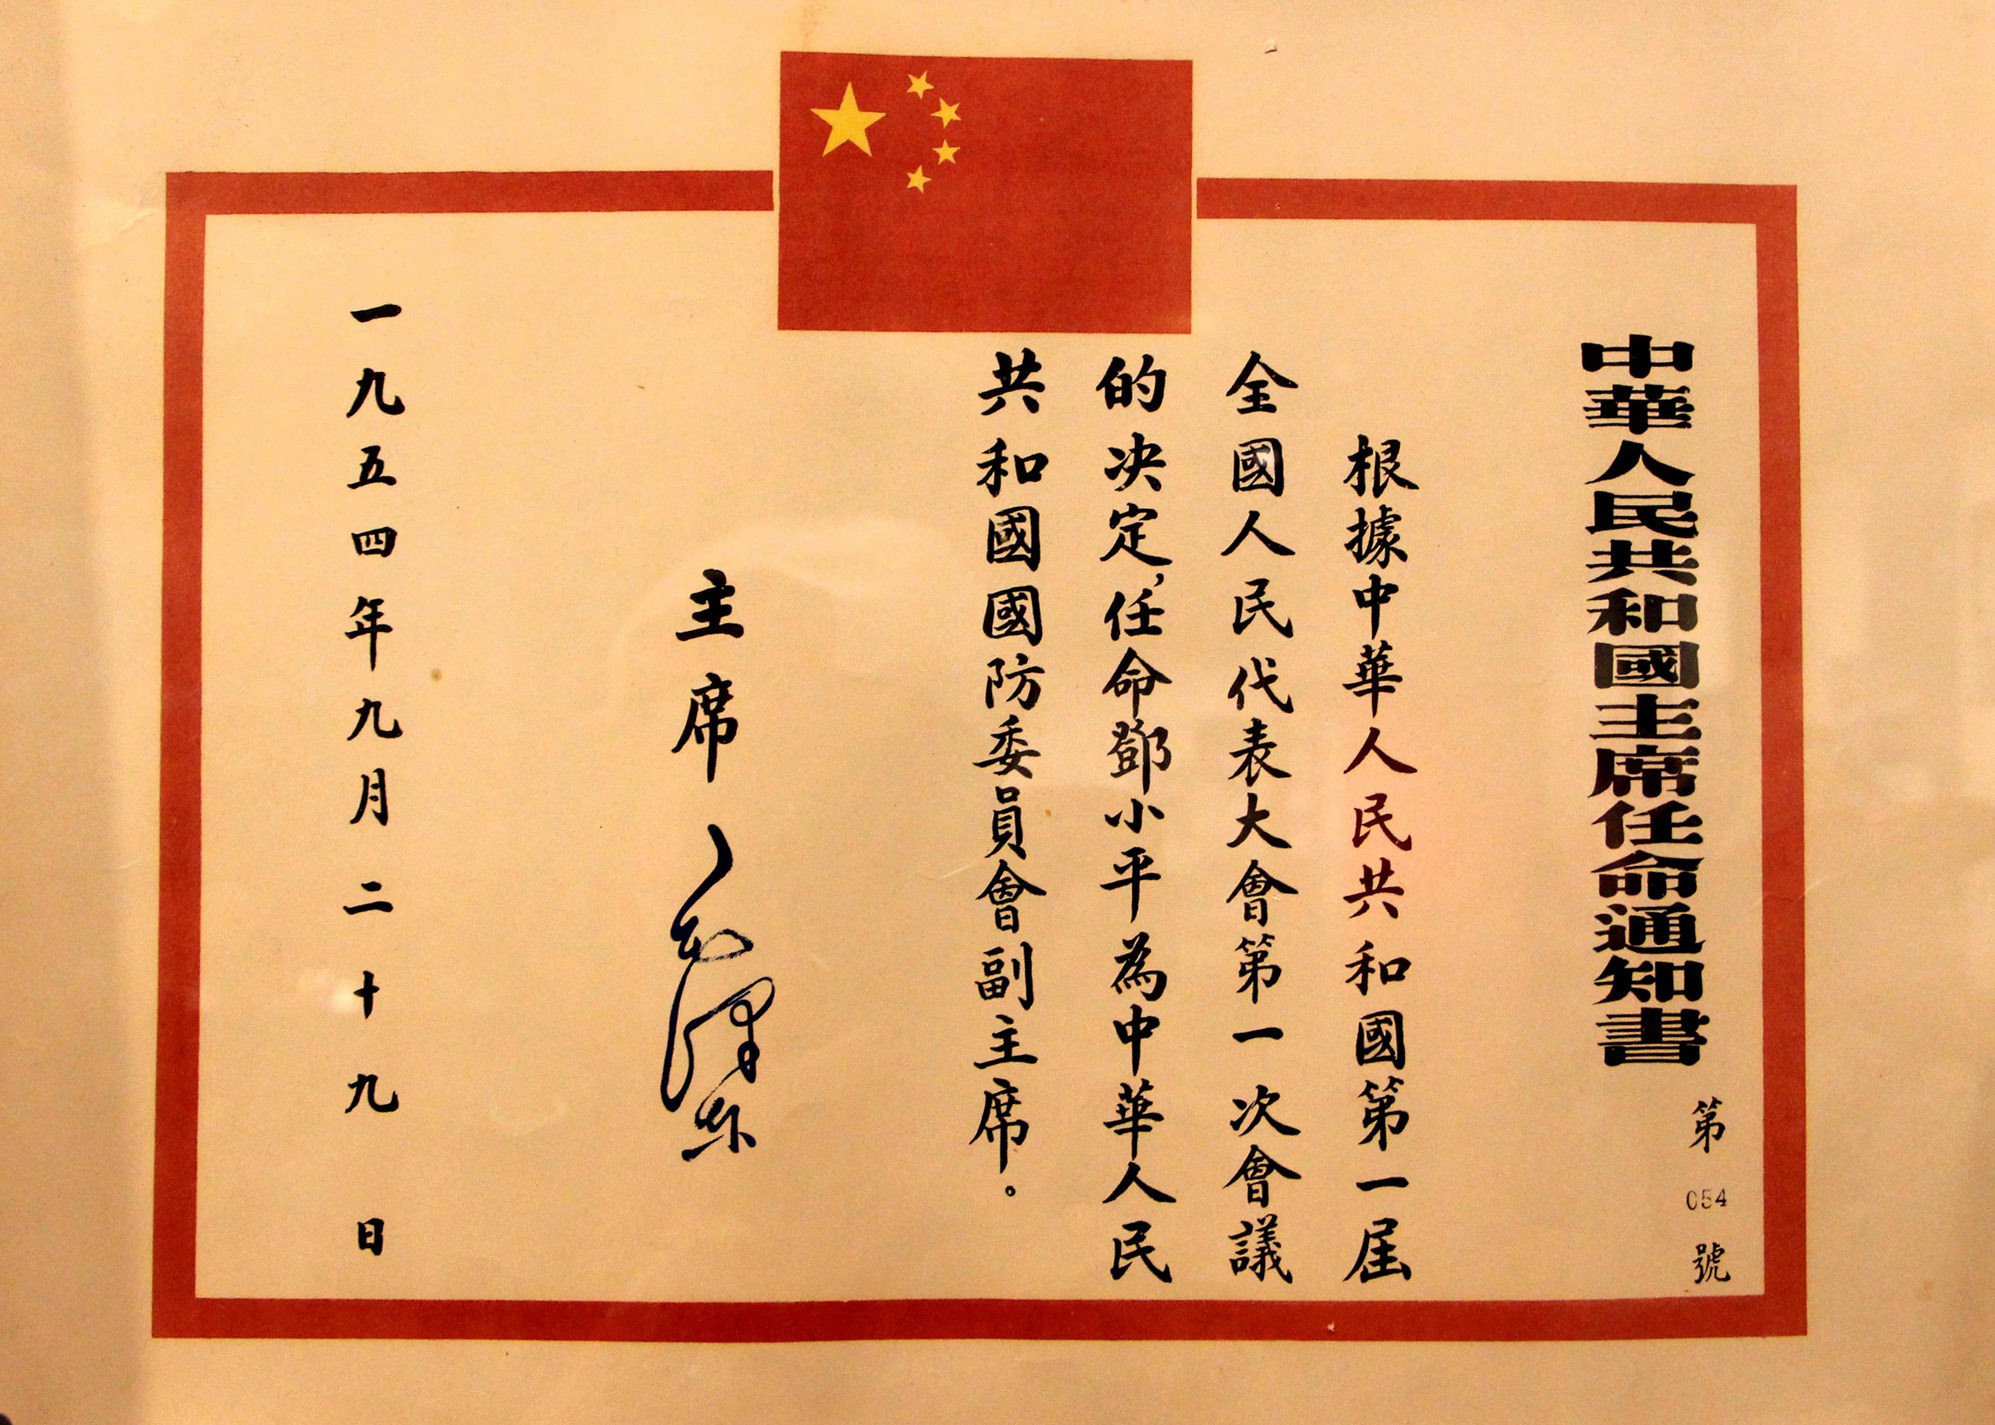 中華人民共和國主席任命通知書
第054號
根據中華人民共和國第一屆
全國人民代表大會第一次會議
的决定，任命鄧小平為中華人民
共和國國防委員會副主席。
主席 毛澤东
一九五四年九月二十九日